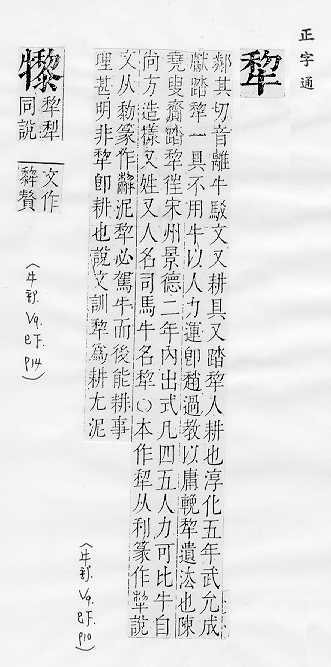 正字通
犂
鄰其切音離牛駁文又耕具又踏犂人耕也淳化五年武允成
獻踏犂一具不用牛以人力運卽趙過教以庸輓犂遺法也陳
堯叟齎踏犂徃宋州景德二年內出式凡四五人力可比牛自
尚方造樣又姓又人名司馬牛名犂○本作犁从利篆作說
文从黎篆作泥犂必駕牛而後能耕事
理甚明非犂卽耕也說文訓犂爲耕尤泥
(牛部. V9. 巳下. p10)
犂犁
同說
文作
贅
(牛部. V9. 巳下. p14)